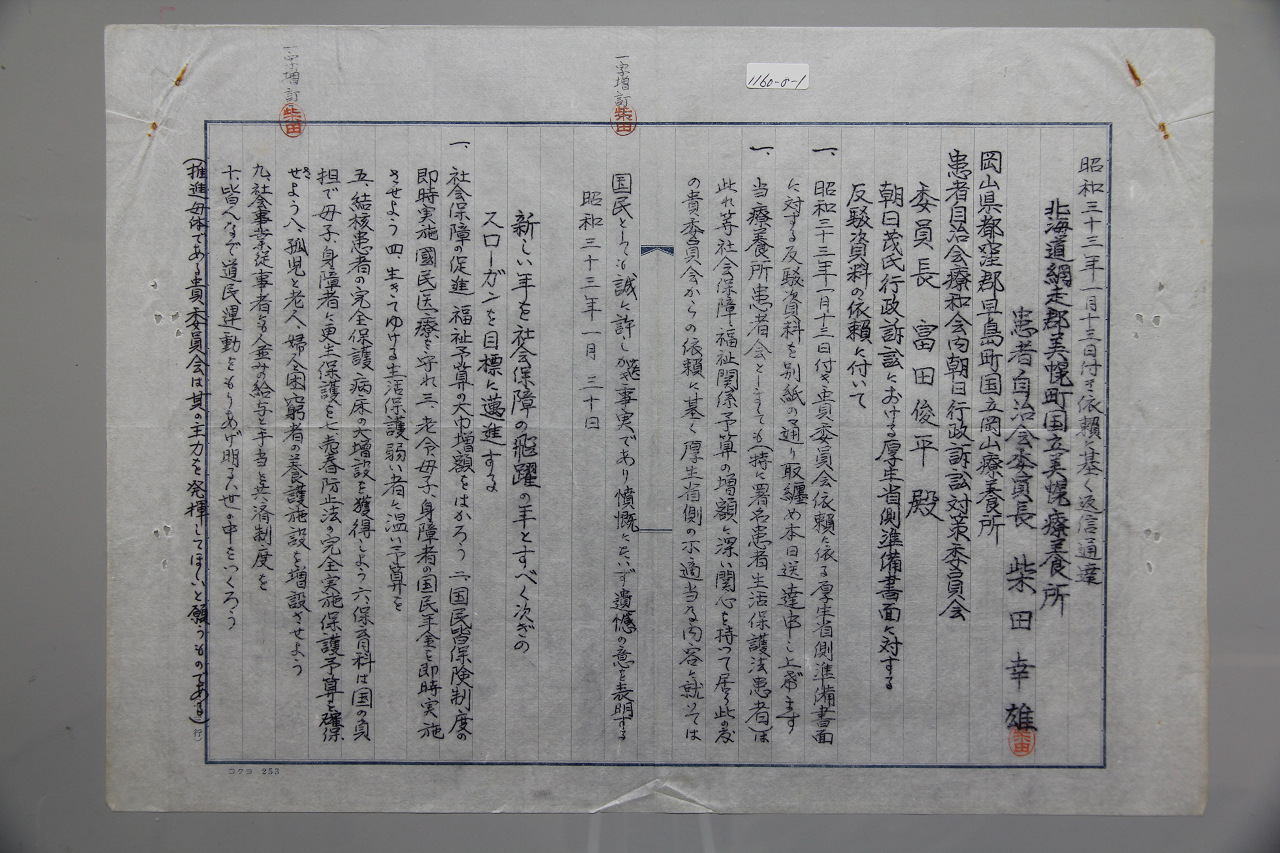 1160-8-1
一字増訂
柴田
一字増訂
柴田
昭和三十三年一月十三日付き依頼に基く返信通達
北海道網走郡美幌町国立美幌療養所
患者自治会委員長 柴田幸雄
柴田
岡山県都窪郡早島町国立岡山療養所
患者自治会療和会内朝日行政訴訟対策委員会
委員長 富田俊平殿
朝日茂氏行政訴訟における厚生省側準備書面に対する
反駁資料の依頼に付いて
一、昭和三十三年一月十三日付き貴委員会依頼に依る厚生省側準備書面
に対する反駁資料を別紙の通り取纏め本日送達申し上げます
一、当療養所患者会としても(特に署名患者生活保護法患者)は
此れ等社会保障と福祉関係予算の増額に深い関心を持つて居る此の度
の貴委員会からの依頼に基く厚生省側の不適当な内容に就いては
国民としても誠に許しが
事実であり憤慨にたいず遺憾の意を表明する
昭和三十三年一月三十日
新しい年を社会保障の飛躍の年とすべく次ぎの
スローガンを目標に邁進する
一、社会保障の促進 福祉予算の大巾増額をはかろう 二、国民皆保険制度の
即時実施國民医療を守れ 三、老令母子、身障者の国民年金を即時実施
させよう 四、生きてゆける生活保護 弱い者に温い予算を
五、結核患者の完全保護 病床の大増設を獲得しよう 六、保育科は国の負
担で母子、身障者に更生保護を 七、売春防止法の完全実施保護予算を確保
せよう 八、孤児と老人、婦人と困窮者の養護施設を増設させよう
き
九、社会事業従事者も人並み給与と手当と共済制度を
十、皆んなで道民運動をもりあげ明るい世の中をつくろう
(推進母体である貴委員会は其の主力を発揮してほしいと願うものである)
(行)
コクヨ 253